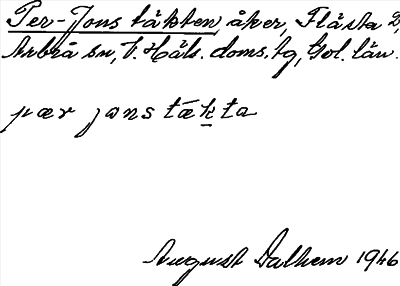 Per-Jons täkten, åker, Flästa 2,
Arbrå sn, V. Häls. doms. tg, Gvl. län.
pær jons tækta
August Dalhem 1946